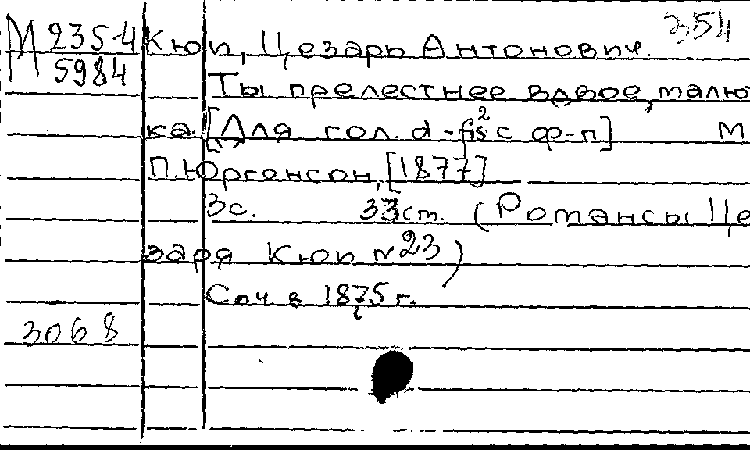 354
М 235-4
5984
Кюи, Цезарь Антонович.
Ты прелестнее вдвое, малю
ка. [Для гол. d-fis² с ф-п] М
П. Юргенсон, [1877]
3с. 33ст. (Романсы Це
заря Кюи №23)
Соч в 1875 г.
3068